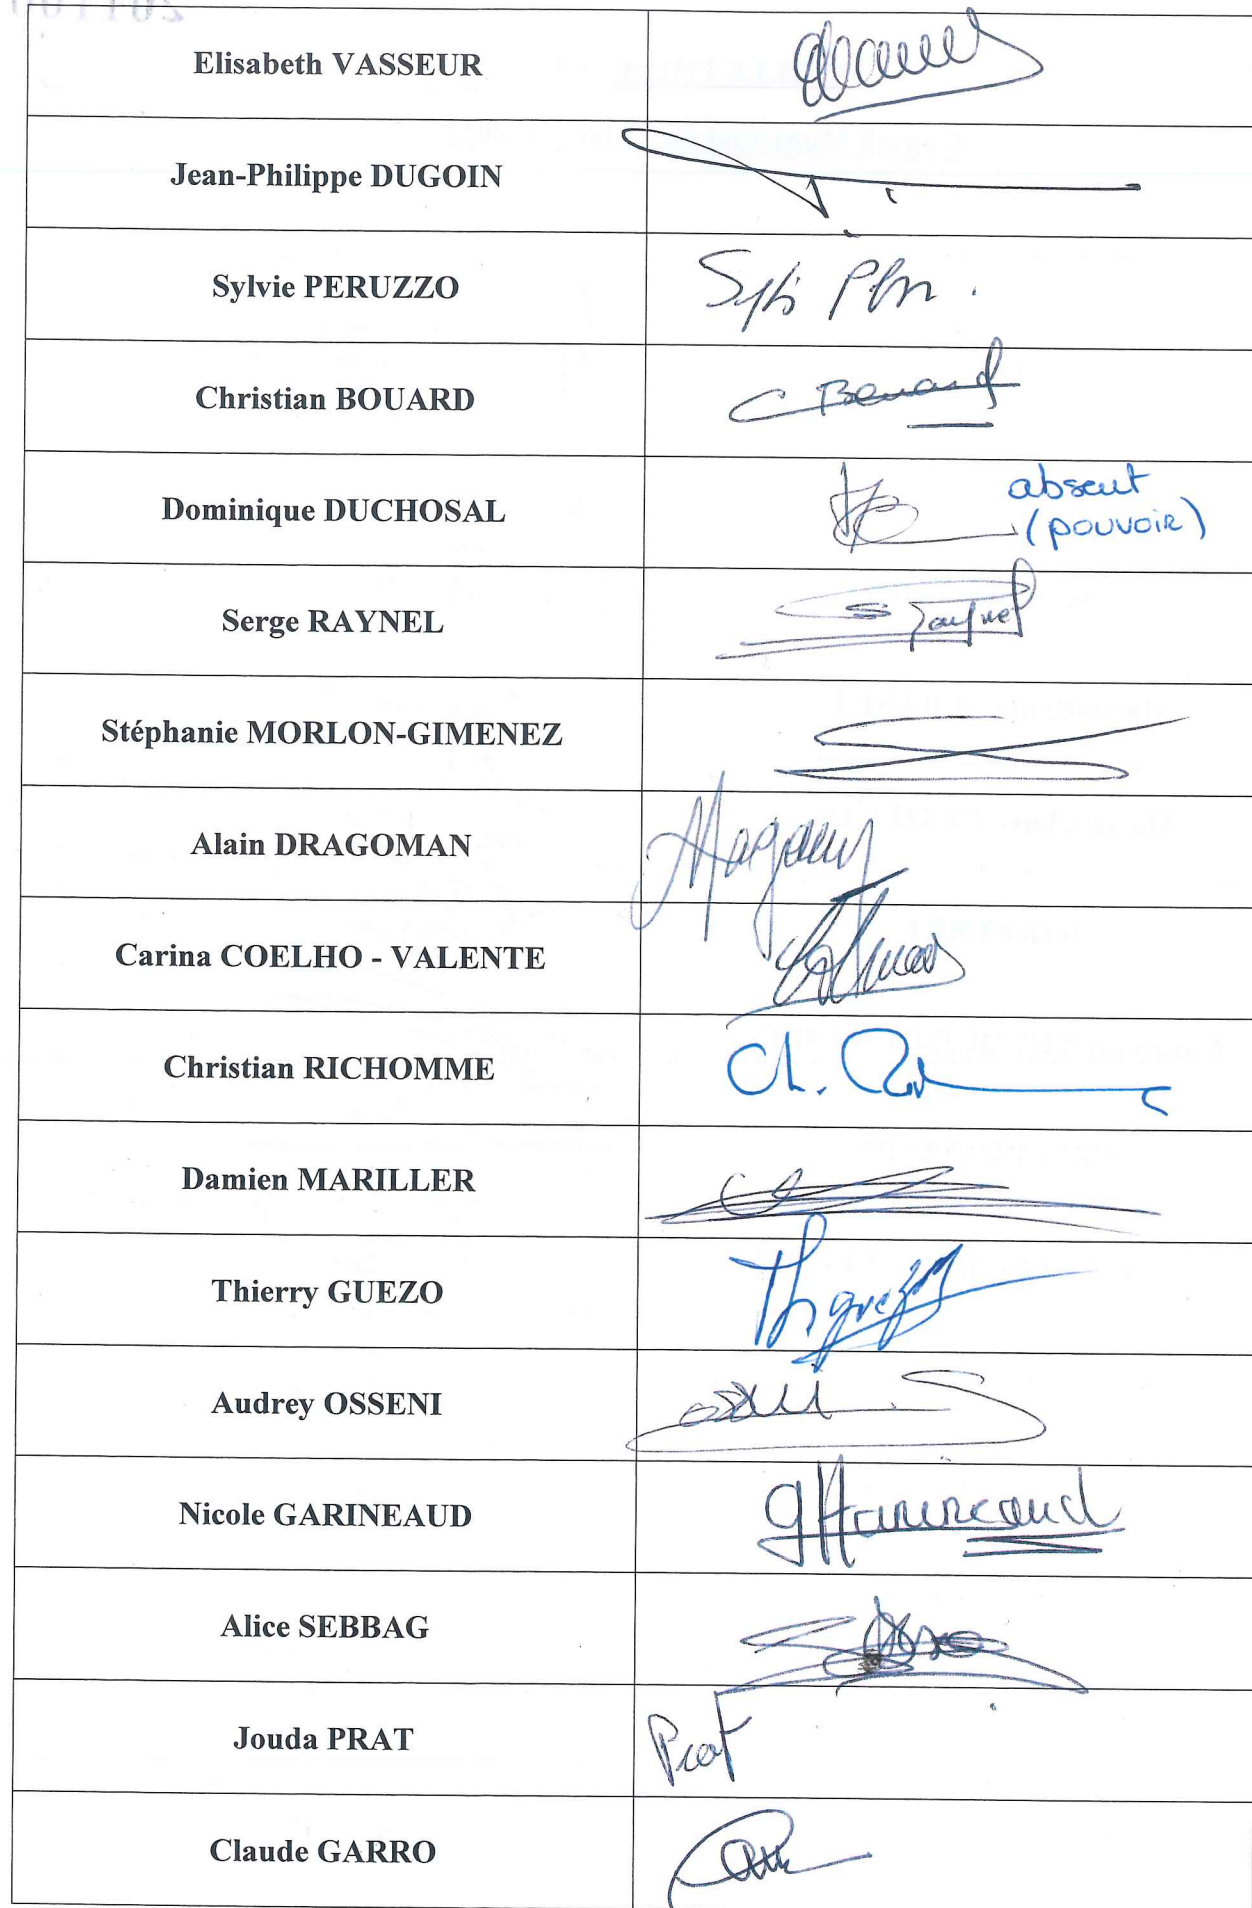 Elisabeth VASSEUR
Jean-Philippe DUGOIN
Sylvie PERUZZO
Christian BOUARD
C Bouard
Dominique DUCHOSAL
absent
(pouvoir)
Serge RAYNEL
S Raynel
Stéphanie MORLON-GIMENEZ
Alain DRAGOMAN
Carina COELHO - VALENTE
Christian RICHOMME
Ch.
Damien MARILLER
Thierry GUEZO
Th guezo
Audrey OSSENI
Nicole GARINEAUD
Alice SEBBAG
Jouda PRAT
Prat
Claude GARRO